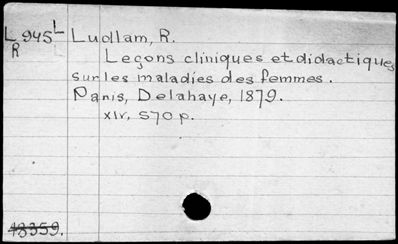 L 945 L Ludlam, R.
R
Leçons cliniques et didactiques
sur les maladies des femmes.
Paris, Delahaye, 1879.
xiv, 570 p.
18359.